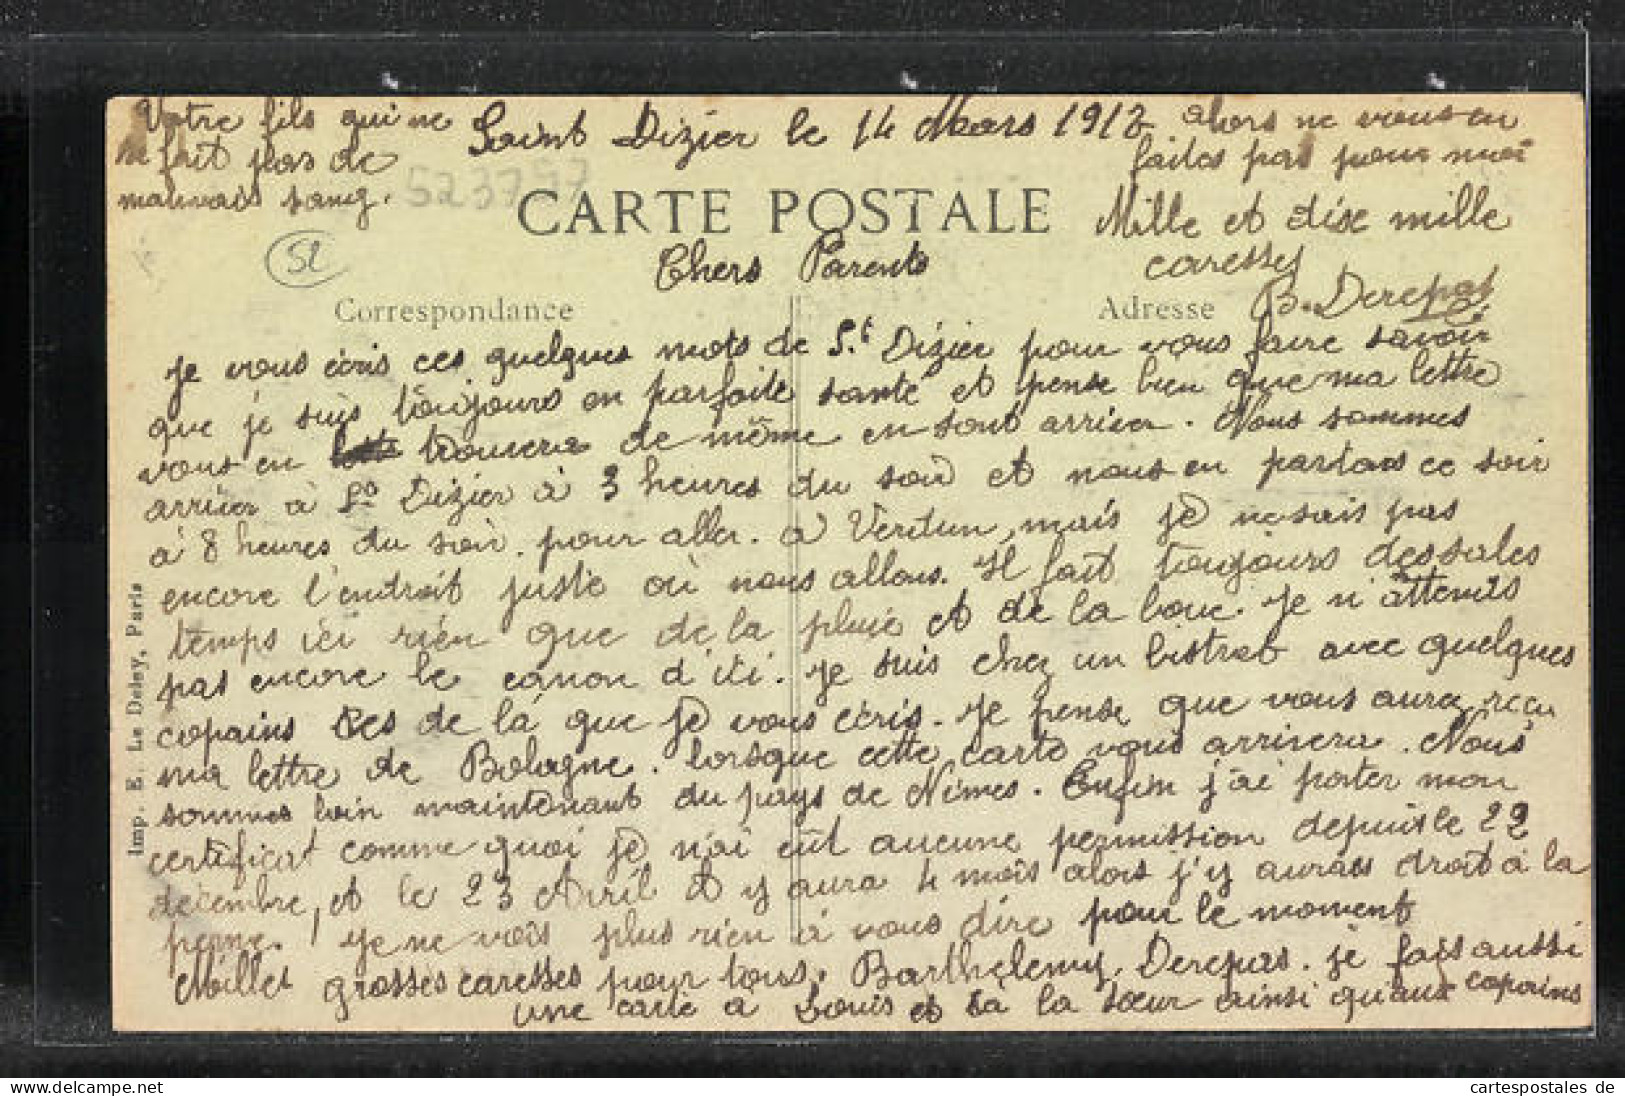 Votre fils qui ne
se fait pas de
mauvais sang.
Saint Dizier le 14 Mars 1912
alors ne vous en
faites pas pour moi
Mille et dix mille
caresses
B. Derepas
523757
51
CARTE POSTALE
Chers Parents
Correspondance
Adresse
je vous écris ces quelques mots de St Dizier pour vous faire savoir
que je suis toujours en parfaite santé et pense bien que ma lettre
vous en trouvera de même en sont arriver. Nous sommes
arriver à St Dizier à 3 heures du soir et nous en partons ce soir
à 8 heures du soir. pour aller. à Verdun, mais je ne sais pas
encore l'endroit juste où nous allons. Il fait toujours des sales
temps ici rien que de la pluie et de la boue. Je n'attends
pas encore le canon d'ici. je suis chez un bistrot avec quelques
copains de là que je vous écris. Je pense que vous aurez reçu
ma lettre de Bologne. lorsque cette carte vous arrivera. Nous
sommes loin maintenant du pays de Nimes. Enfin j'ai porter mon
certificat comme quoi je n'ai eût aucune permission depuis le 22
décembre, et le 23 Avril il y aura 4 mois alors j'y aurais droit à la
perme. Je ne vois plus rien à vous dire pour le moment
Milles grosses caresses pour tous. Barthelemy. Derepas. je fais aussi
une carte à Louis et à la sœur ainsi qu'aux copains
Imp. E. Le Deley, Paris
www.cartespostales.de
cartespostales de